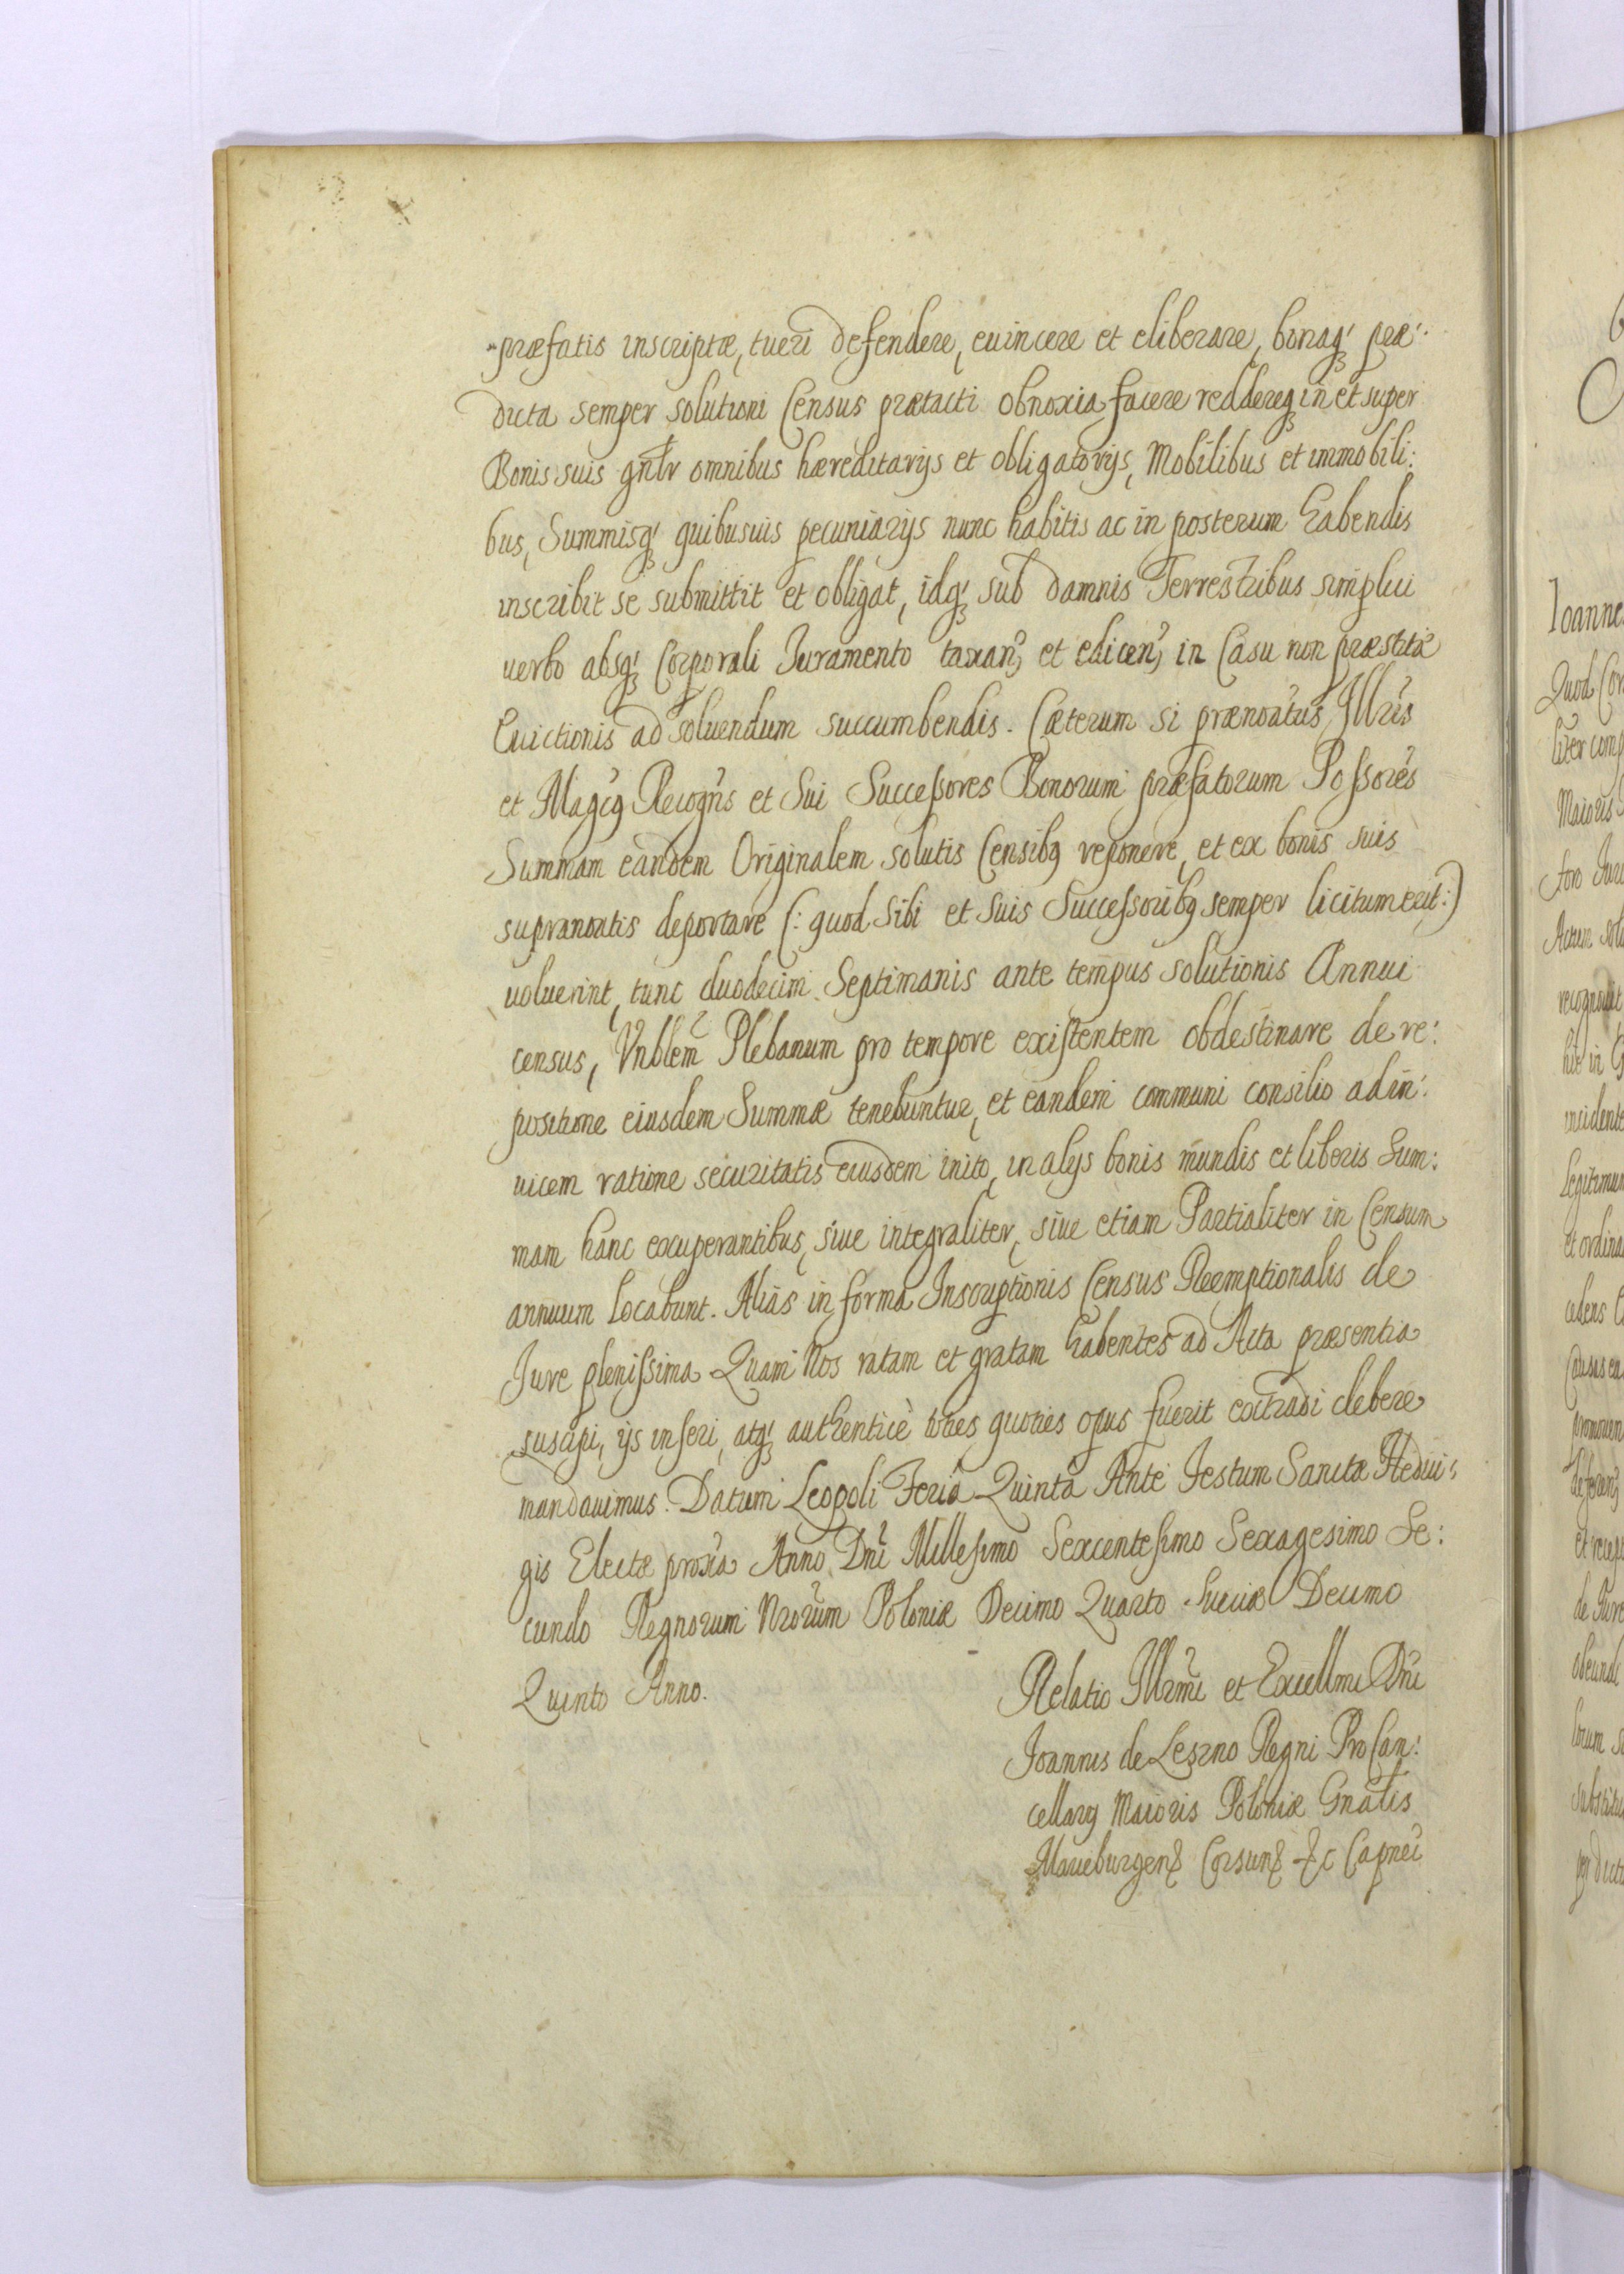 præfatis inscriptæ, tueri defendere, euincere et eliberare, bonaq; præ:
dicta semper solutioni Census prætacti obnoxia facere reddereq; in et super
Bonis suis gnlr omnibus hæreditarijs et obligatorijs, Mobilibus et immobili:
bus, Summisq; quibusuis pecuniarijs nunc habitis ac in posterum habendis
inscribit se submittit et obligat, idq; sub damnis Terrestribus simplici
uerbo absq; Corporali Juramento taxan; et edicen; in Casu non præstitæ
Euictionis ad soluendum succumbendis. Cæterum si prænoatus Illris
et Magcg Recogns et Sui Successores Bonorum præfatorum Possores
Summam eandem Originalem solutis Censibg reponere, et ex bonis suis
supranoatis deportare (: quod Sibi et Suis Successoribg semper licitum erit:)
uoluerint, tunc duodecim Septimanis ante tempus solutionis Annui
census, Vnblem Plebanum pro tempore existentem obdestinare de re:
positione eiusdem Summæ tenebuntur, et eandem communi consilio ad in:
uicem ratione securitatis eiusdem inito, in alijs bonis mundis et liberis Sum:
mam hanc excuperantibus, siue integraliter, siue etiam Partialiter in Censum
annuum locabunt. Alias in forma Inscriptionis Census Reemptionalis de
Jure plenissima Quam Nos ratam et gratam habentes ad Acta præsentia
suscipi, ijs inseri, atq; authenticè toties quoties opus fuerit extradi debere
mandauimus. Datum Leopoli Feria Quinta Ante Festum Sanctæ Hedui:
gis Electæ proxa Anno Dni Millesimo Sexcentesimo Sexagesimo Se:
cundo Regnorum Nrorum Poloniæ Decimo Quarto Sueciæ Decimo
Quinto Anno.
Relatio Illrmi et Excellmi Dni
Joannis de Leszno Regni ProCan:
cellarij Maioris Poloniæ Gnalis
Marieburgen Corsun &c Capnei